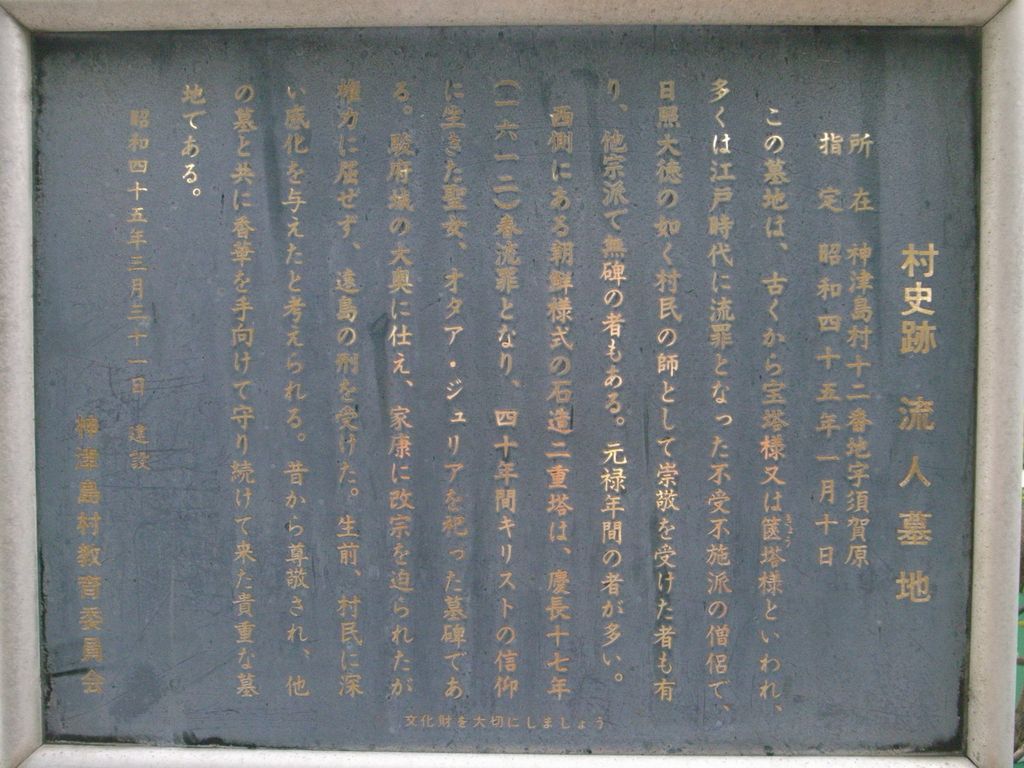 村史跡 流人墓地
所在 神津島村十二番地字須賀原
指定 昭和四十五年一月十日
この墓地は、古くから宝塔様又は篋塔様といわれ、
きょう
多くは江戸時代に流罪となった不受不施派の僧侶で、
日照大徳の如く村民の師として崇敬を受けた者も有
り、他宗派で無碑の者もある。元禄年間の者が多い。
西側にある朝鮮様式の石造二重塔は、慶長十七年
(一六一二)春流罪となり、四十年間キリストの信仰
に生きた聖女、オタア・ジュリアを祀った墓碑であ
る。駿府城の大奥に仕え、家康に改宗を迫られたが
権力に屈せず、遠島の刑を受けた。生前、村民に深
い感化を与えたと考えられる。昔から尊敬され、他
の墓と共に香華を手向けて守り続けて来た貴重な墓
地である。
昭和四十五年三月三十一日 建設
神津島村教育委員会
文化財を大切にしましょう